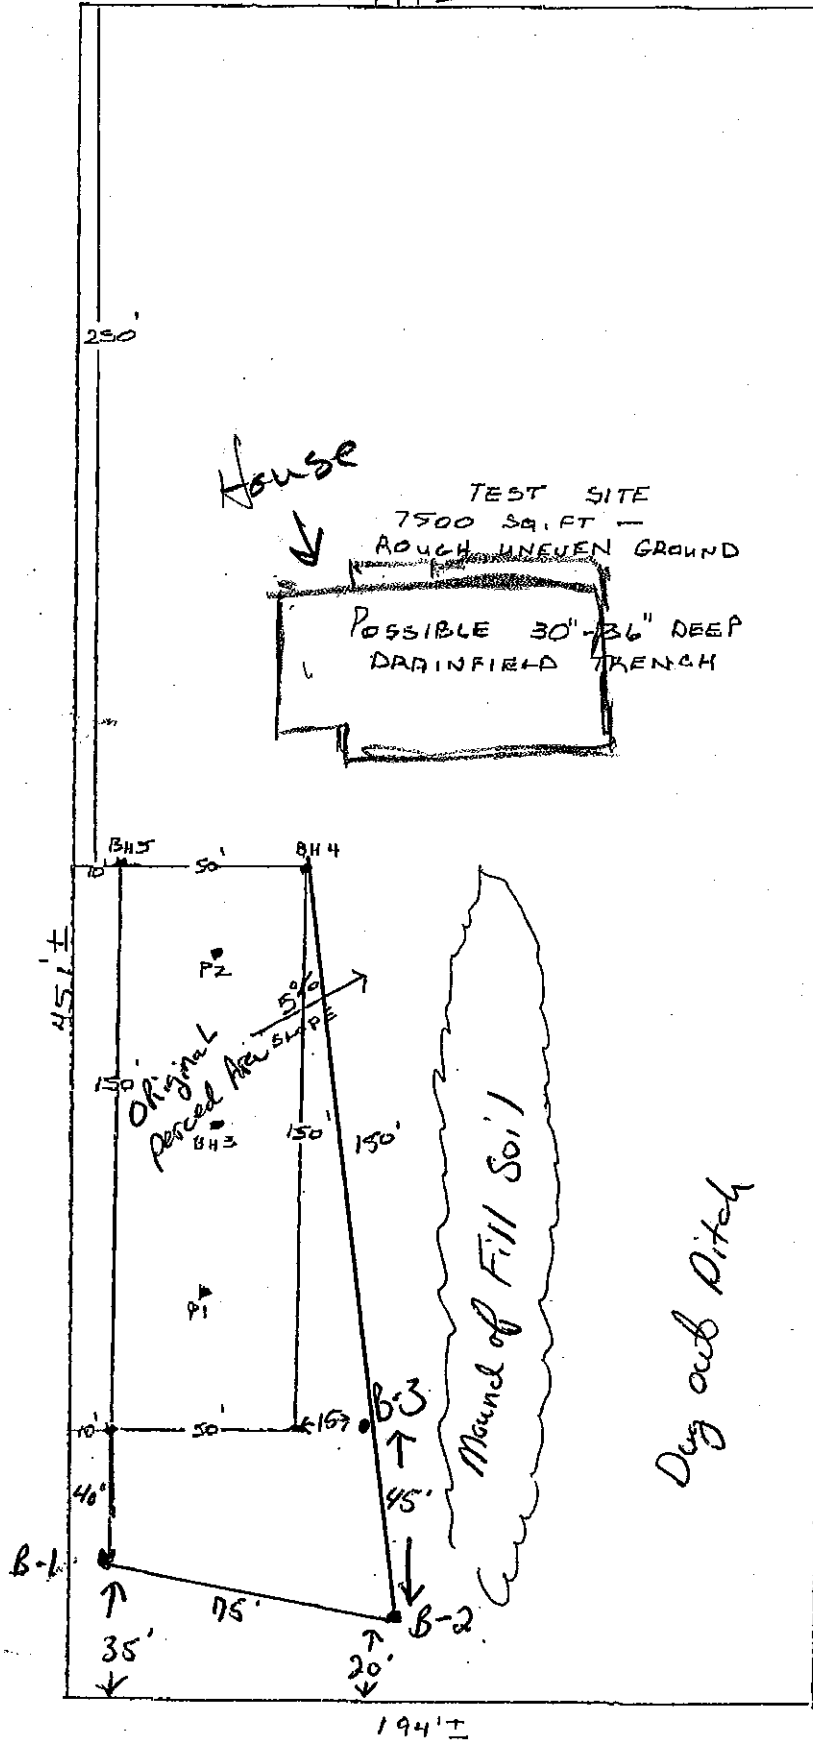 250'
House
TEST SITE
7500 SQ. FT —
ROUGH UNEVEN GROUND
POSSIBLE 30"-36" DEEP
DRAINFIELD TRENCH
BH5
BH4
10'
50'
P2
451'±
5%
SLOPE
150'
Original
perced Area
BH3
150'
150'
P1
Mound of Fill Soil
Dug out Ditch
10'
50'
B-3
40'
45'
B-1
75'
B-2
35'
20'
194'±